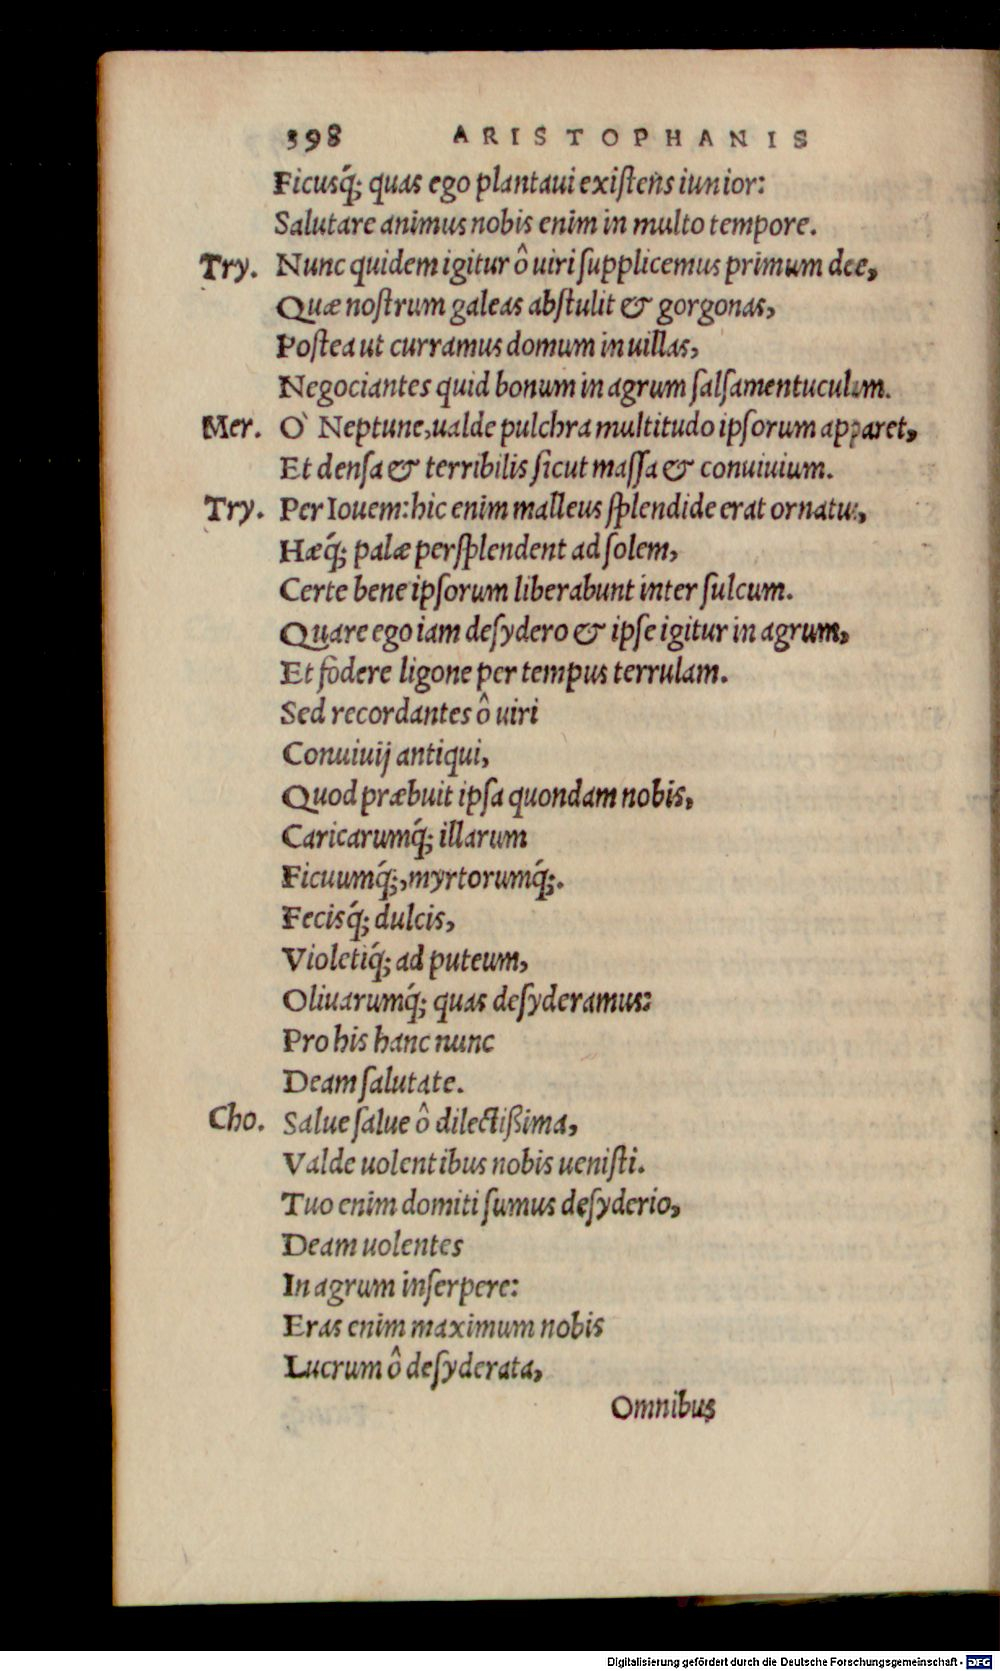 398 ARISTOPHANIS
Ficusq́; quas ego plantaui existens iunior:
Salutare animus nobis enim in multo tempore.
Try. Nunc quidem igitur ô uiri supplicemus primum deę,
Quæ nostrum galeas abstulit & gorgonas,
Postea ut curramus domum in uillas,
Negociantes quid bonum in agrum salsamentuculum.
Mer. O` Neptune, ualde pulchra multitudo ipsorum apparet,
Et densa & terribilis sicut massa & conuiuium.
Try. Per Iouem: hic enim malleus splendide erat ornatus,
Hæq́; palæ persplendent ad solem,
Certe bene ipsorum liberabunt inter sulcum.
Quare ego iam desydero & ipse igitur in agrum,
Et fodere ligone per tempus terrulam.
Sed recordantes ô uiri
Conuiuij antiqui,
Quod præbuit ipsa quondam nobis,
Caricarumq́; illarum
Ficuumq́;, myrtorumq́;.
Fecisq́; dulcis,
Violetiq́; ad puteum,
Oliuarumq́; quas desyderamus:
Pro his hanc nunc
Deam salutate.
Cho. Salue salue ô dilectißima,
Valde uolentibus nobis uenisti.
Tuo enim domiti sumus desyderio,
Deam uolentes
In agrum inserpere:
Eras enim maximum nobis
Lucrum ô desyderata,
Omnibus
Digitalisierung gefördert durch die Deutsche Forschungsgemeinschaft - DFG